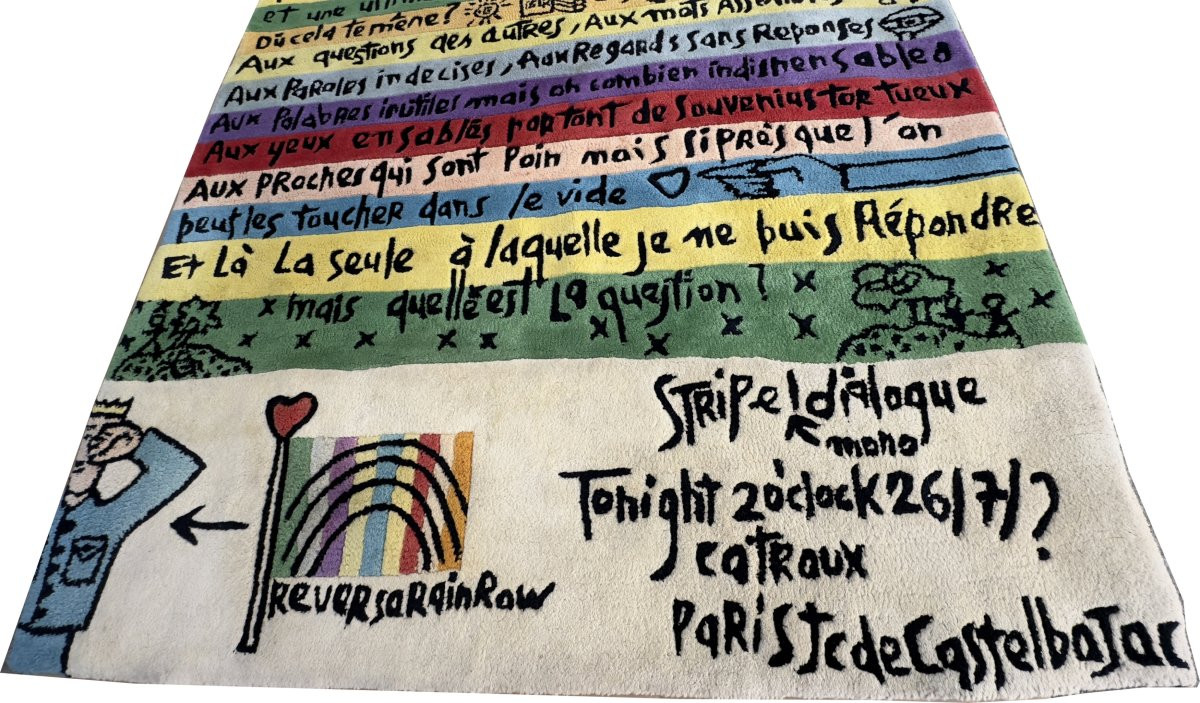 et une
Où cela te mène?
Aux questions des autres, Aux mots
Aux Paroles indecises, Aux Regards sans Reponses
Aux Palabres inutiles mais oh combien indispensables
Aux yeux ensablés portant de souvenirs tortueux
Aux proches qui sont Poin mais si près que l'on
peut les toucher dans le vide
Et Là La seule à laquelle je ne puis Répondre
mais quelle est La question?
STRIPe! dialogue
mono
Tonight 2o'clock 26/7/?
catroux
PARiS Jc de CastelbaJac
ReveRsaRainRow